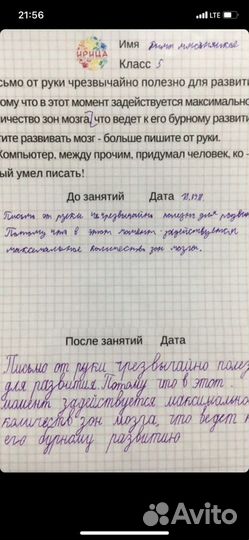 21:56
ИРИЦА
Имя Дима
Класс 5
сьмо от руки чрезвычайно полезно для развити
ому что в этот момент задействуется максимально
ичество зон мозга, что ведет к его бурному развити
ите развивать мозг - больше пишите от руки.
Компьютер, между прочим, придумал человек, ко -
ый умел писать!
До занятий Дата
Письмо от руки чрезвычайно полезно для развит
Потому что в этот момент задействуется
максимальное количество зон мозга.
После занятий Дата
Письмо от руки чрезвычайно полез
для развития. Потому что в этот
момент задействуется максимально
количество зон мозга, что ведет к
его бурному развитию
Avito